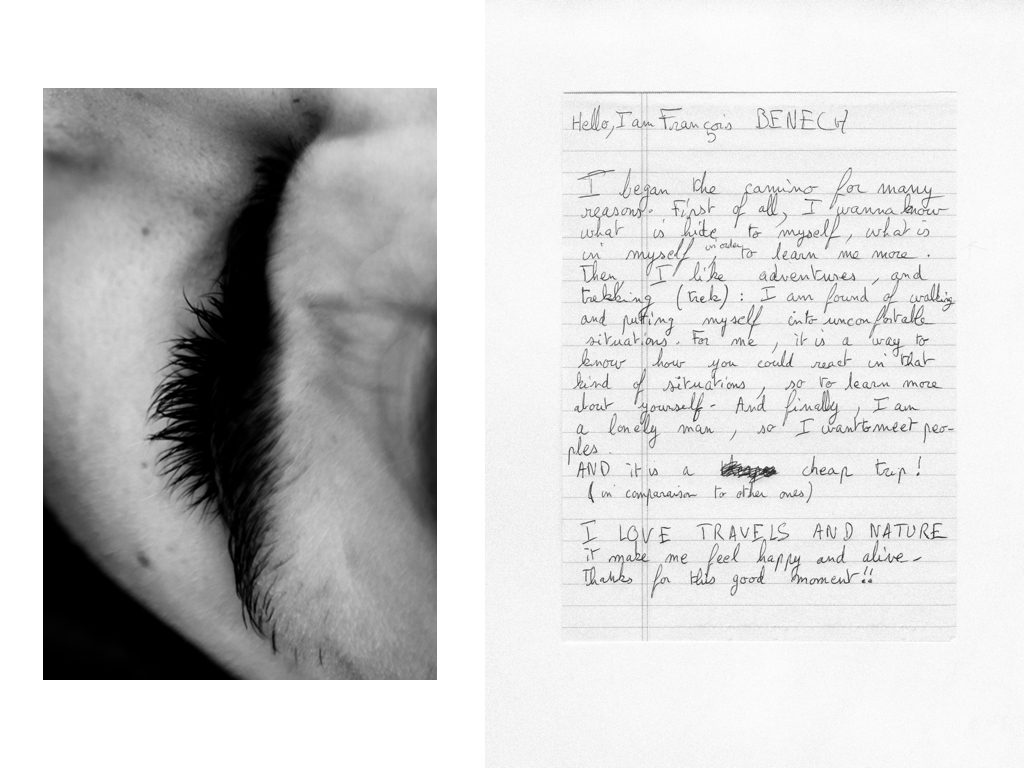 Hello, I am François BENECH
I began the camino for many
reasons. First of all, I wanna know
what is hide to myself, what is
in myself, in order to learn me more.
Then, I like adventures, and
trekking (trek) : I am found of walking
and putting myself into unconfortable
situations. For me, it is a way to
know how you could react in that
kind of situations, so to learn more
about yourself. And finally, I am
a lonely man, so I want to meet peo-
ples.
AND it is a cheap trip !
(in comparaison to other ones)
I LOVE TRAVELS AND NATURE
it make me feel happy and alive.
Thanks for this good moment !!